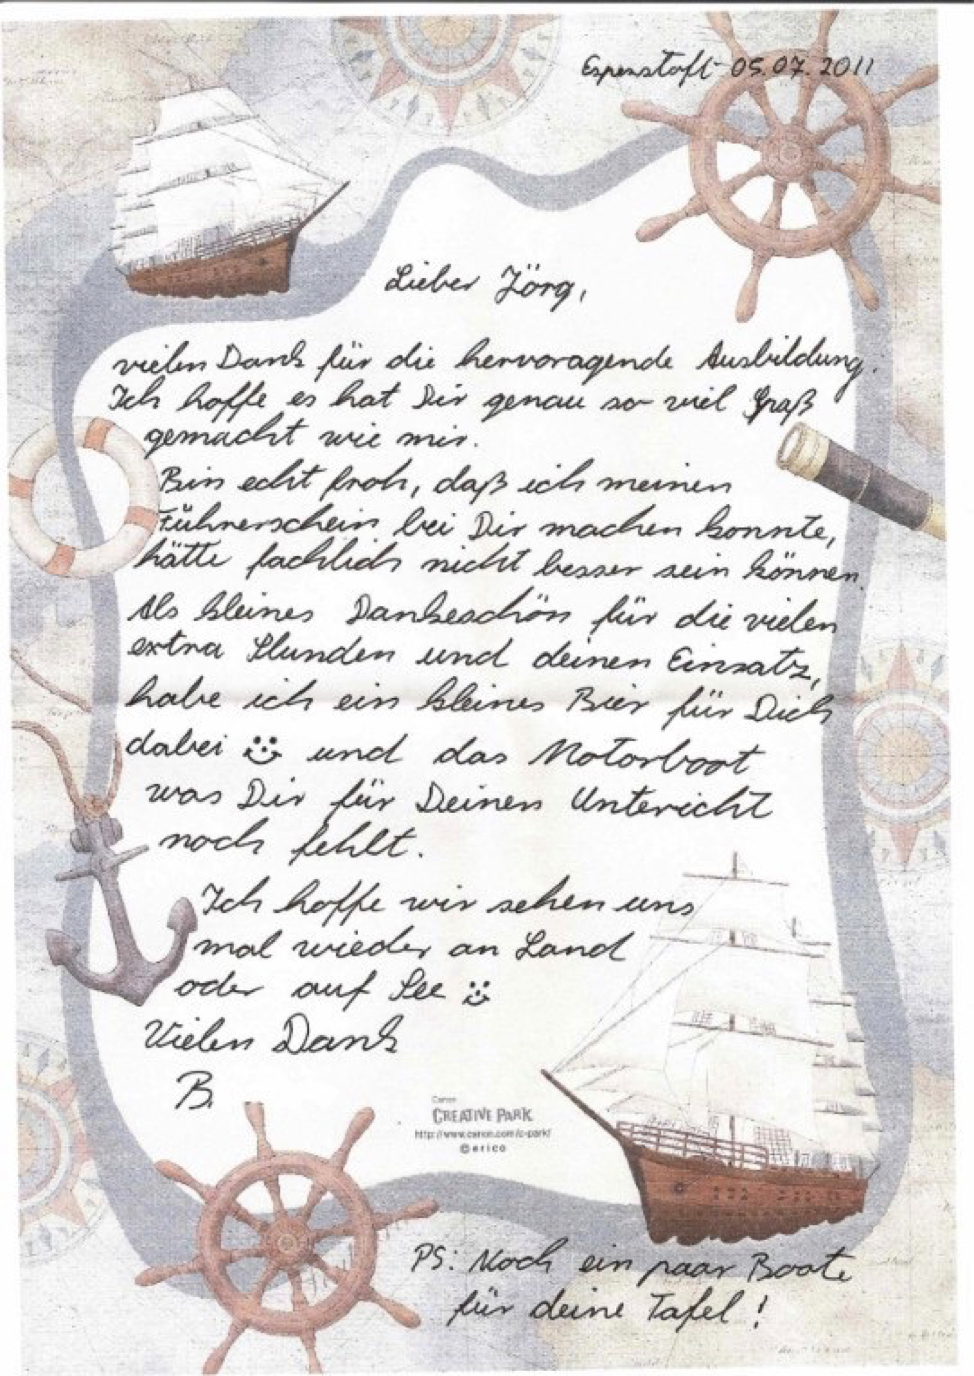 Espenstoft 05.07.2011
Lieber Jörg,
vielen Dank für die hervoragende Ausbildung.
Ich hoffe es hat Dir genau so viel Spaß
gemacht wie mir.
Bin echt froh, daß ich meinen
Führerschein bei Dir machen konnte,
hätte fachlich nicht besser sein können.
Als kleines Dankeschön für die vielen
extra Stunden und deinen Einsatz,
habe ich ein kleines Bier für Dich
dabei und das Motorboot
was Dir für Deinen Unterricht
noch fehlt.
Ich hoffe wir sehen uns
mal wieder an Land
oder auf See
Vielen Dank
B.
Canon
CREATIVE PARK
http://www.canon.com/c-park/
© erico
PS: Noch ein paar Boote
für deine Tafel!